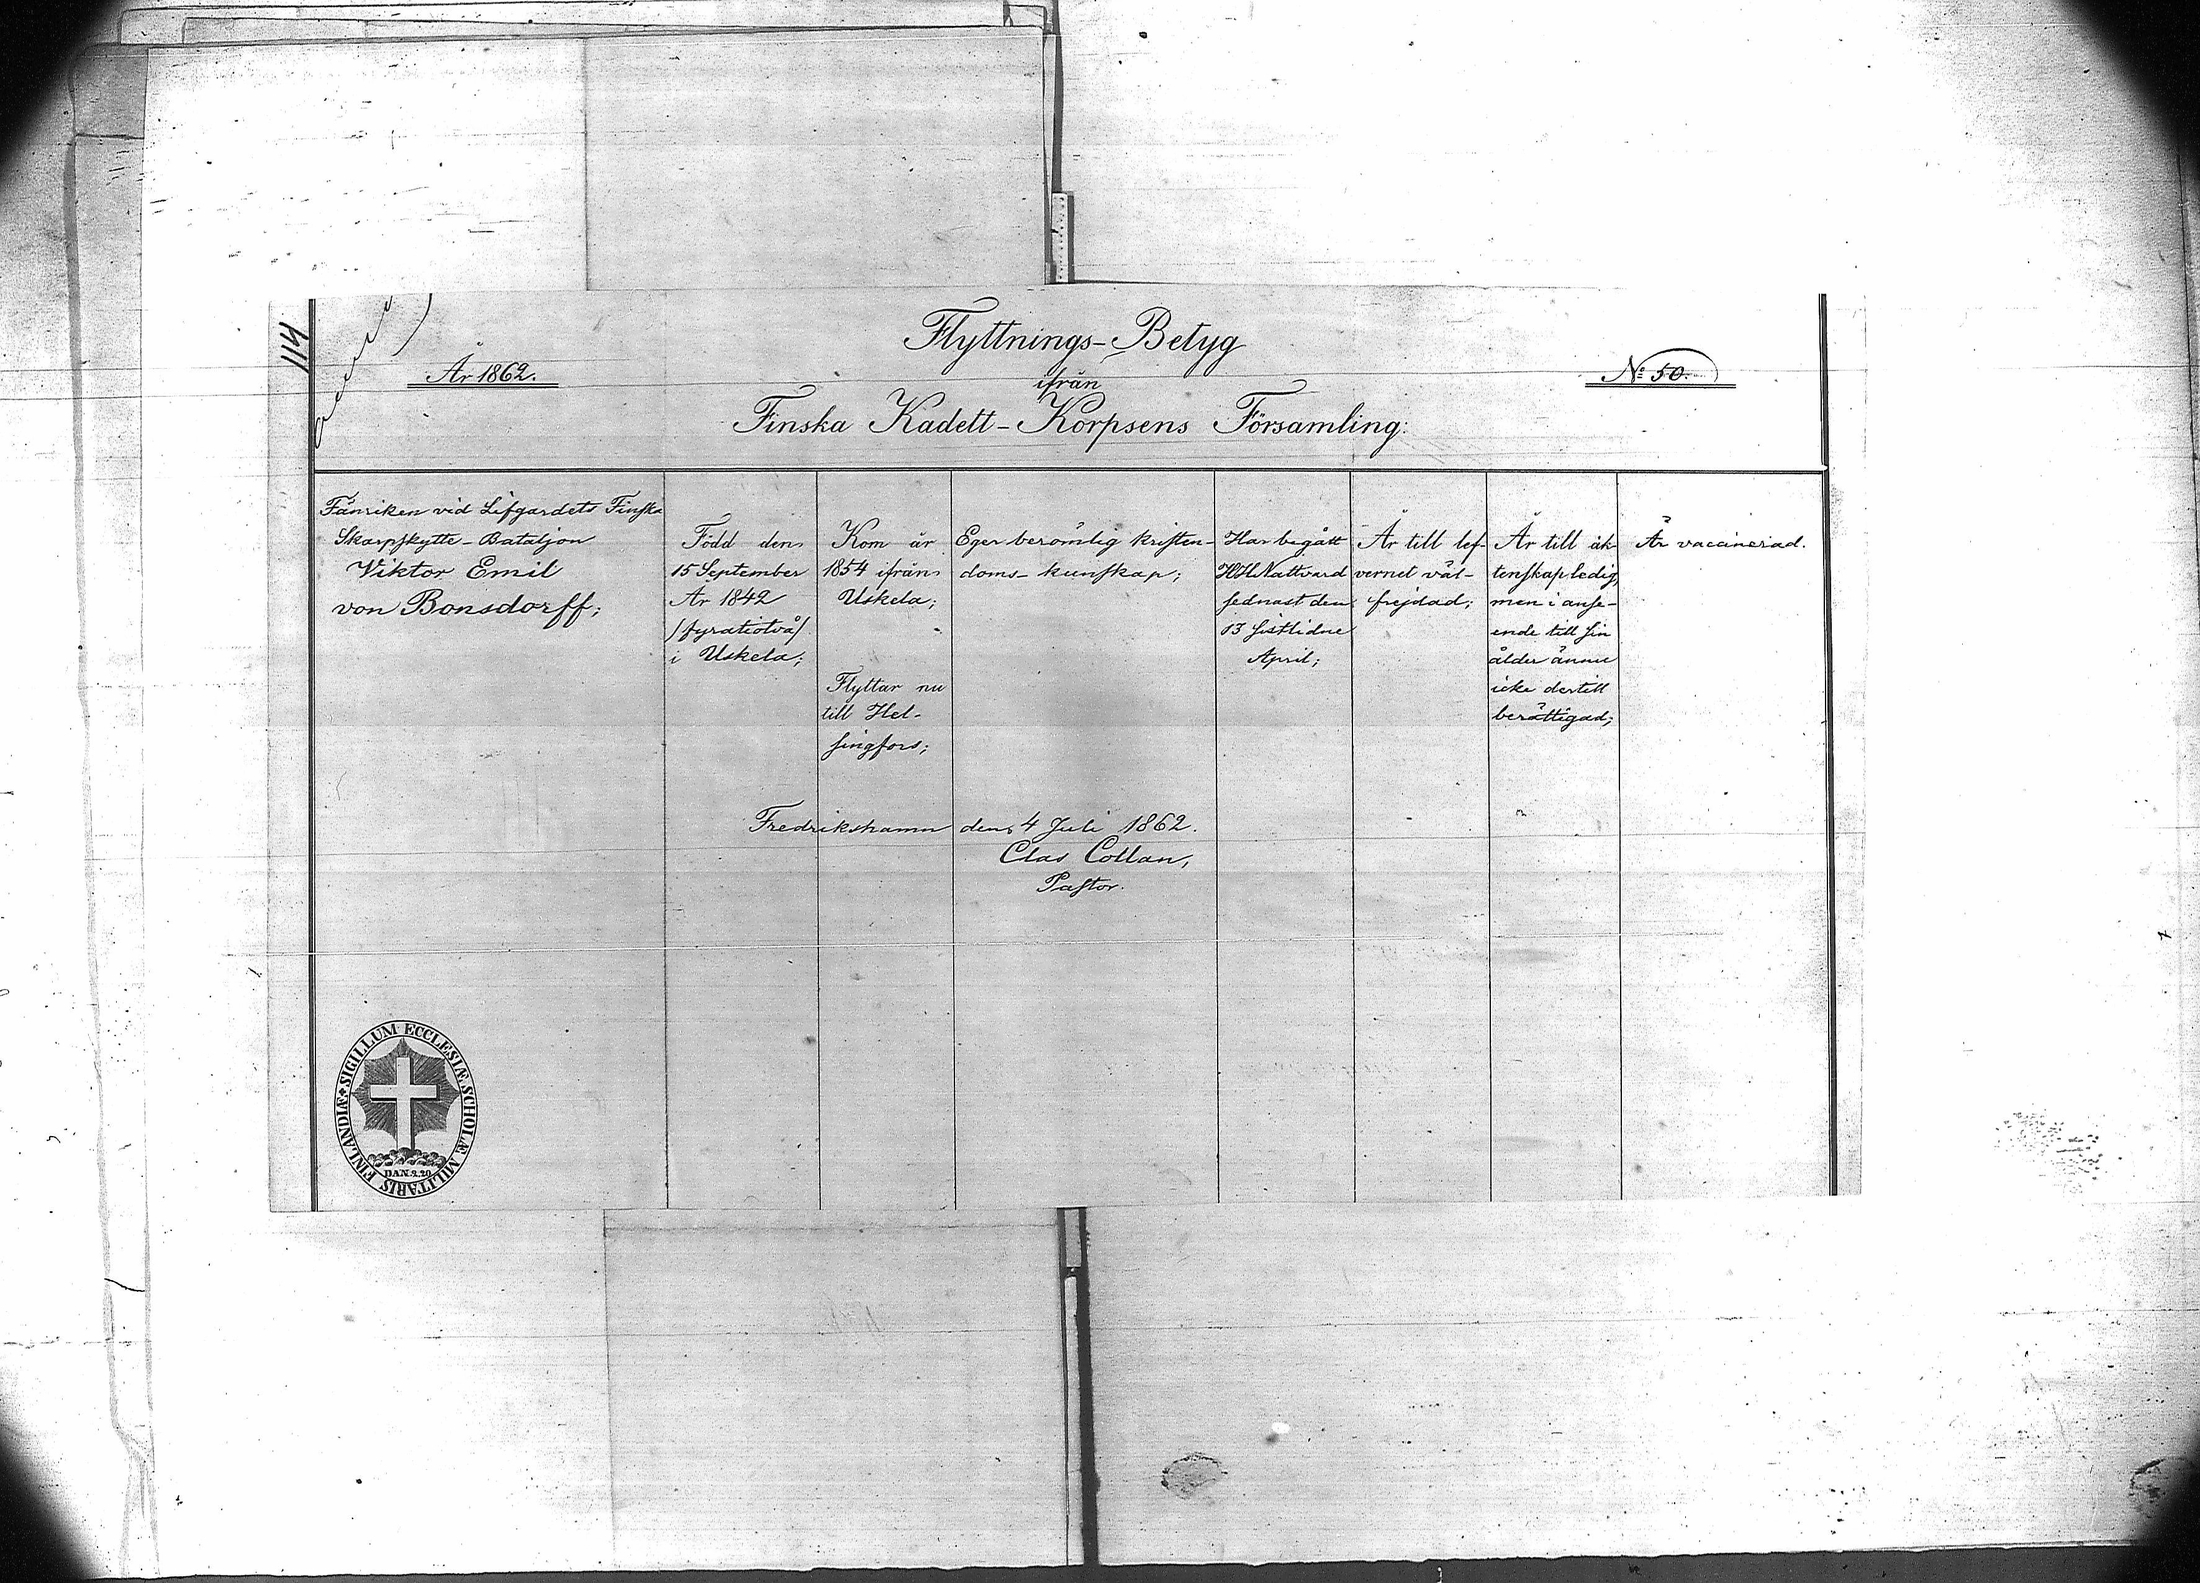 114
År 1862.
Flyttnings-Betyg
ifrån
Finska Kadett-Korpsens Församling:
№ 50.
Fänriken vid Lifgardets Finska
Skarpskytte-Bataljon
Viktor Emil
von Bonsdorff;
Född den
15 September
År 1842
/fyratiotvå/
i Uskela;
Kom år
1854 ifrån
Uskela;
Flyttar nu
till Hel-
singfors;
Eger berömlig kristen-
doms-kunskap;
Har begått
H.H. Nattvard
sednast den
13 sistlidne
April;
Är till lef-
vernet väl-
frejdad;
Är till äk-
tenskap ledig,
men i anse-
ende till sin
ålder ännu
icke dertill
berättigad;
Är vaccinerad.
Fredrikshamn den 4 Juli 1862.
Clas Collan,
Pastor.
SIGILLUM ECCLESIÆ SCHOLÆ MILITARIS FINLANDIÆ
DAN. 2. 20